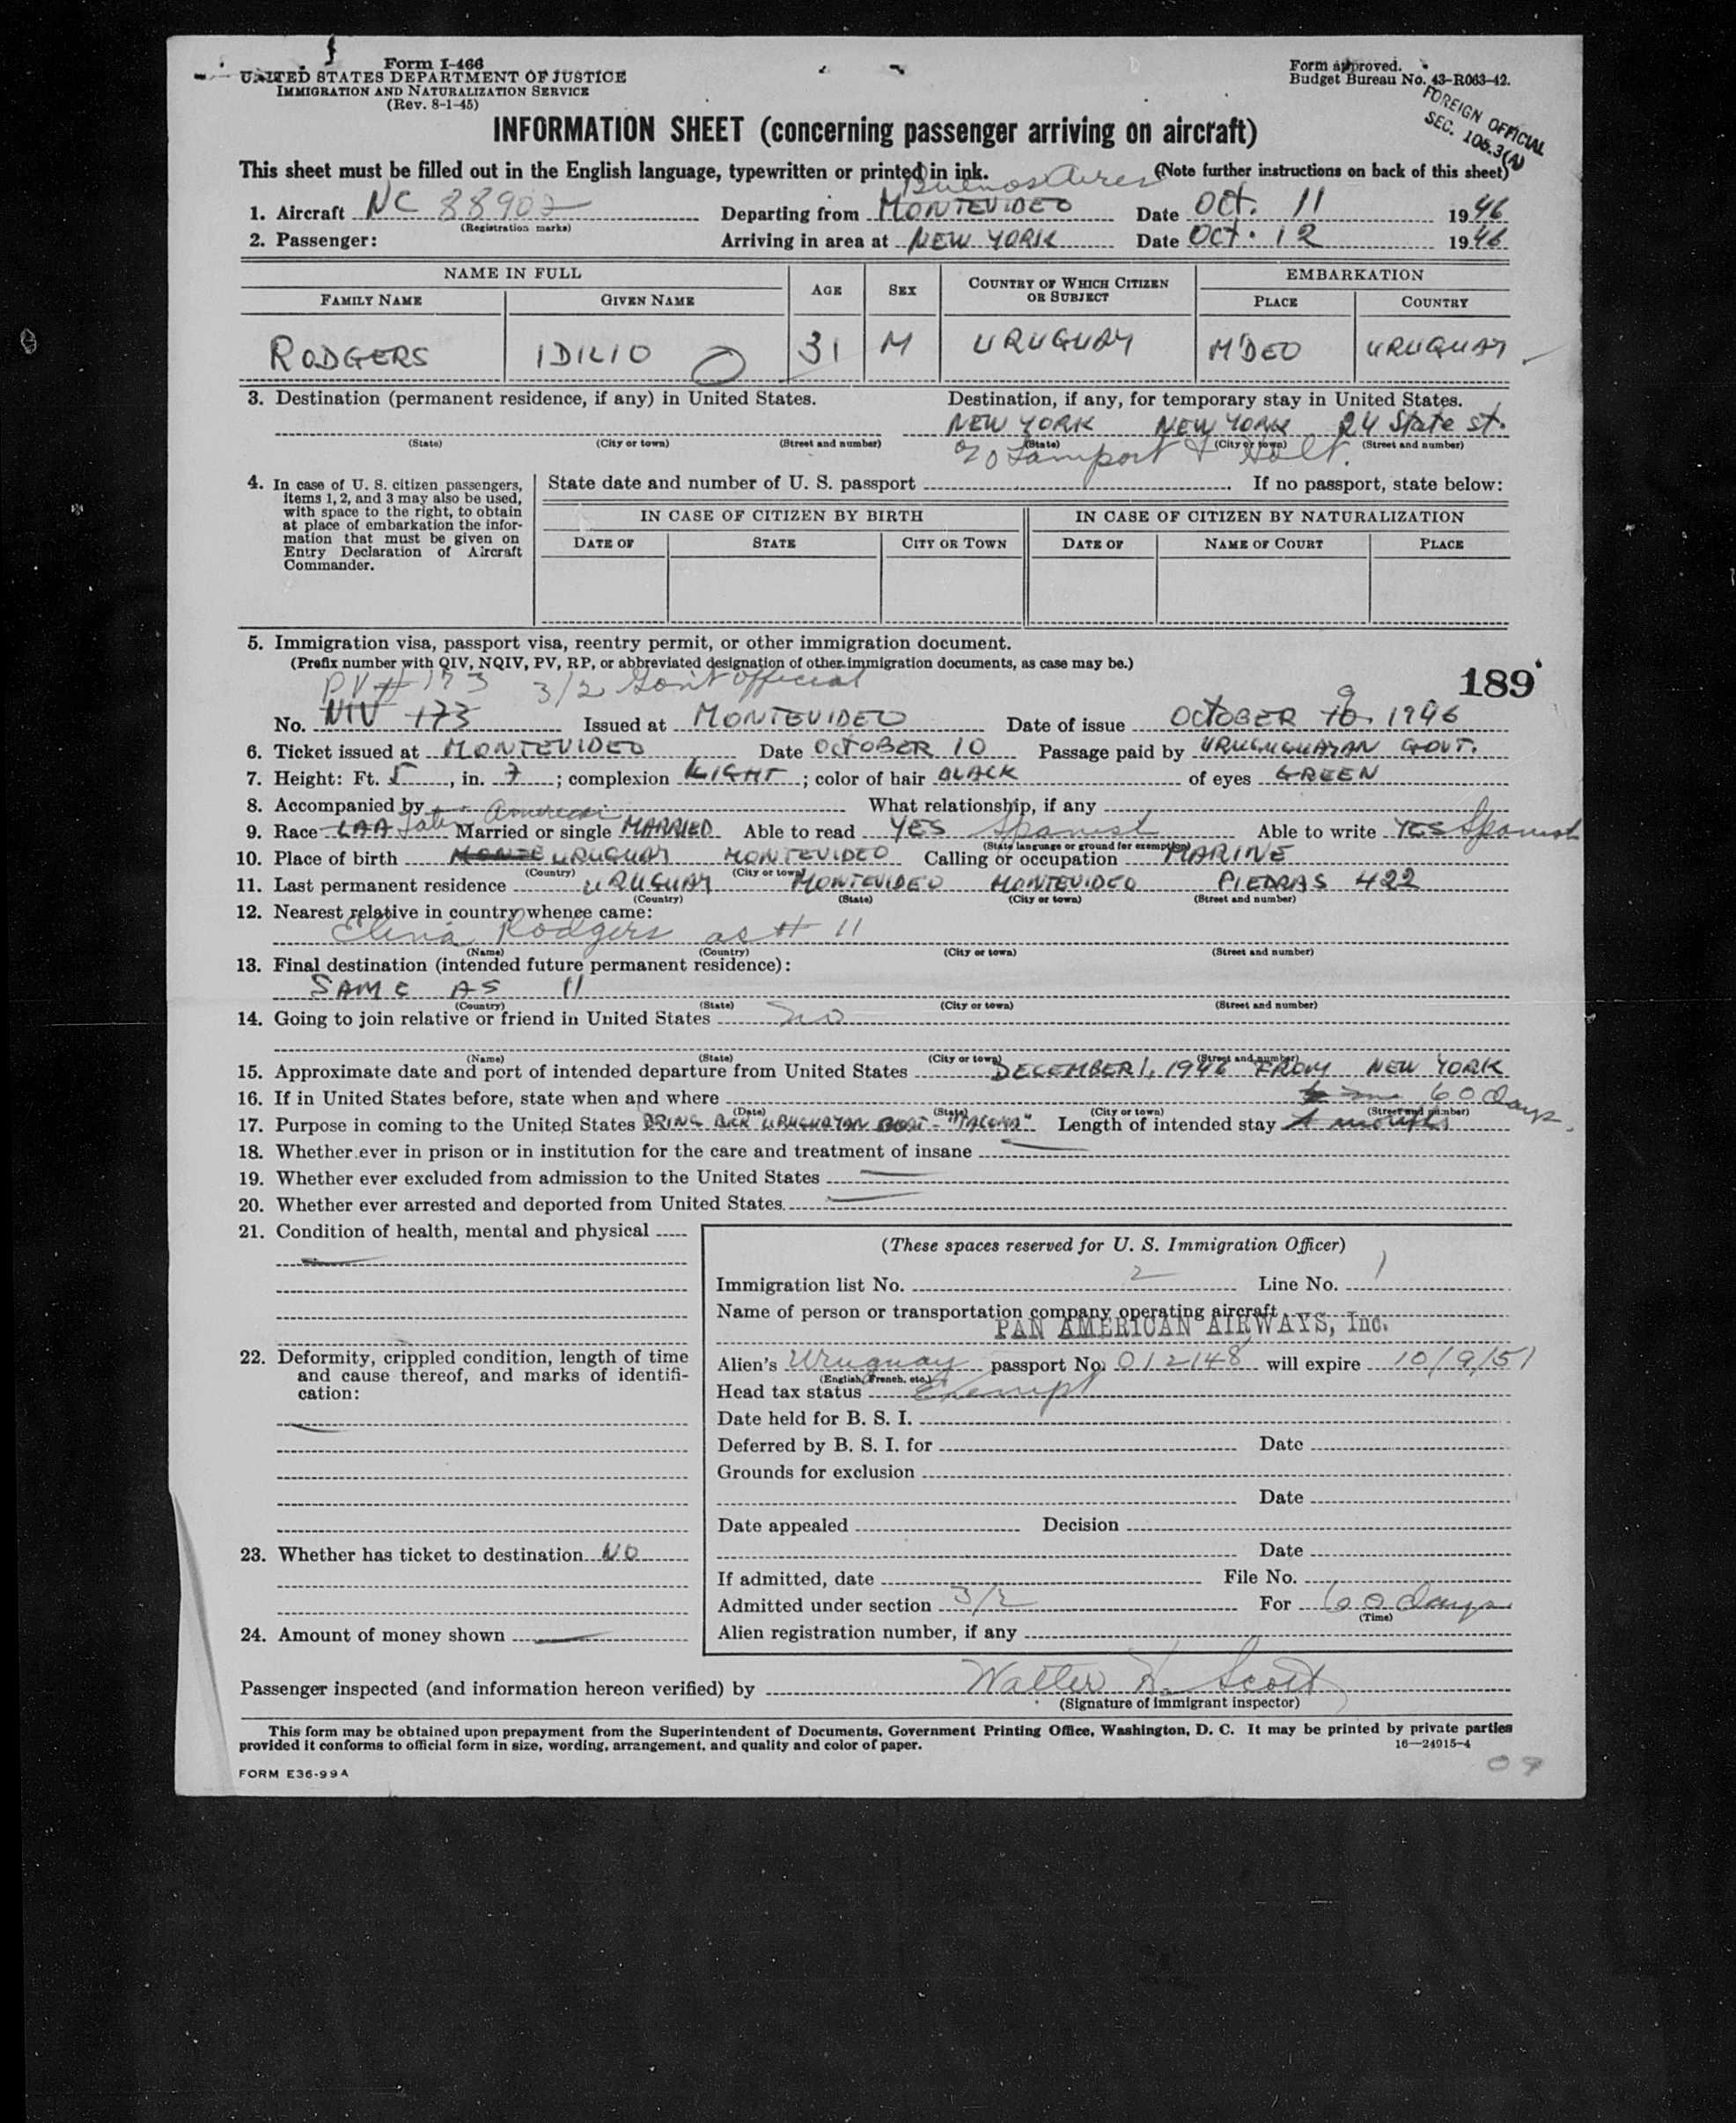 Form I-466
UNITED STATES DEPARTMENT OF JUSTICE
IMMIGRATION AND NATURALIZATION SERVICE
(Rev. 8-1-45)
Form approved.
Budget Bureau No. 43-R063-42.
FOREIGN OFFICIAL
SEC. 105.3(A)
INFORMATION SHEET (concerning passenger arriving on aircraft)
This sheet must be filled out in the English language, typewritten or printed in ink. (Note further instructions on back of this sheet)
Buenos Aires
1. Aircraft NC 88902 Departing from MONTEVIDEO Date OCT. 11 1946
(Registration marks)
2. Passenger: Arriving in area at NEW YORK Date OCT. 12 1946
NAME IN FULL AGE SEX COUNTRY OF WHICH CITIZEN OR SUBJECT EMBARKATION
FAMILY NAME GIVEN NAME PLACE COUNTRY
RODGERS IDILIO 31 M URUGUAY M'DEO URUGUAY
3. Destination (permanent residence, if any) in United States. Destination, if any, for temporary stay in United States.
NEW YORK NEW YORK 24 State st.
(State) (City or town) (Street and number) (State) (City or town) (Street and number)
c/o Lamport & Holt.
4. In case of U. S. citizen passengers, items 1, 2, and 3 may also be used, with space to the right, to obtain at place of embarkation the information that must be given on Entry Declaration of Aircraft Commander.
State date and number of U. S. passport If no passport, state below:
IN CASE OF CITIZEN BY BIRTH IN CASE OF CITIZEN BY NATURALIZATION
DATE OF STATE CITY OR TOWN DATE OF NAME OF COURT PLACE
5. Immigration visa, passport visa, reentry permit, or other immigration document.
(Prefix number with QIV, NQIV, PV, RP, or abbreviated designation of other immigration documents, as case may be.)
189
PV # 173 3/2 Gov't Official
No. NIV 173 Issued at MONTEVIDEO Date of issue OCTOBER 10 9, 1946
6. Ticket issued at MONTEVIDEO Date OCTOBER 10 Passage paid by URUGUGUAYAN GOVT.
7. Height: Ft. 5, in. 7; complexion LIGHT; color of hair BLACK of eyes GREEN
8. Accompanied by What relationship, if any
9. Race LAA Latin American Married or single MARRIED Able to read YES Spanish Able to write YES Spanish
(State language or ground for exemption)
10. Place of birth URUGUAY MONTEVIDEO Calling or occupation MARINE
(Country) (City or town)
11. Last permanent residence URUGUAY MONTEVIDEO MONTEVIDEO PIEDRAS 422
(Country) (State) (City or town) (Street and number)
12. Nearest relative in country whence came:
Elena Rodgers as # 11
(Name) (Country) (City or town) (Street and number)
13. Final destination (intended future permanent residence):
SAME AS 11
(Country) (State) (City or town) (Street and number)
14. Going to join relative or friend in United States no
(Name) (State) (City or town) (Street and number)
15. Approximate date and port of intended departure from United States DECEMBER 1, 1946 FROM NEW YORK
16. If in United States before, state when and where
(Date) (State) (City or town) (Street and number)
60 days
17. Purpose in coming to the United States BRING BACK URUGUAYAN BOAT - "TACOMA" Length of intended stay
18. Whether ever in prison or in institution for the care and treatment of insane
19. Whether ever excluded from admission to the United States
20. Whether ever arrested and deported from United States.
21. Condition of health, mental and physical
22. Deformity, crippled condition, length of time and cause thereof, and marks of identification:
23. Whether has ticket to destination NO
24. Amount of money shown
(These spaces reserved for U. S. Immigration Officer)
Immigration list No. 2 Line No. 1
Name of person or transportation company operating aircraft
PAN AMERICAN AIRWAYS, Inc.
Alien's Uruguay passport No. 012148 will expire 10/9/51
(English, French, etc.)
Head tax status Exempt
Date held for B. S. I.
Deferred by B. S. I. for Date
Grounds for exclusion
Date
Date appealed Decision
Date
If admitted, date File No.
Admitted under section 3/2 For 60 days
(Time)
Alien registration number, if any
Passenger inspected (and information hereon verified) by Walter H. Scott
(Signature of immigrant inspector)
This form may be obtained upon prepayment from the Superintendent of Documents, Government Printing Office, Washington, D. C. It may be printed by private parties
provided it conforms to official form in size, wording, arrangement, and quality and color of paper.
16—24915-4
FORM E36-99A
09